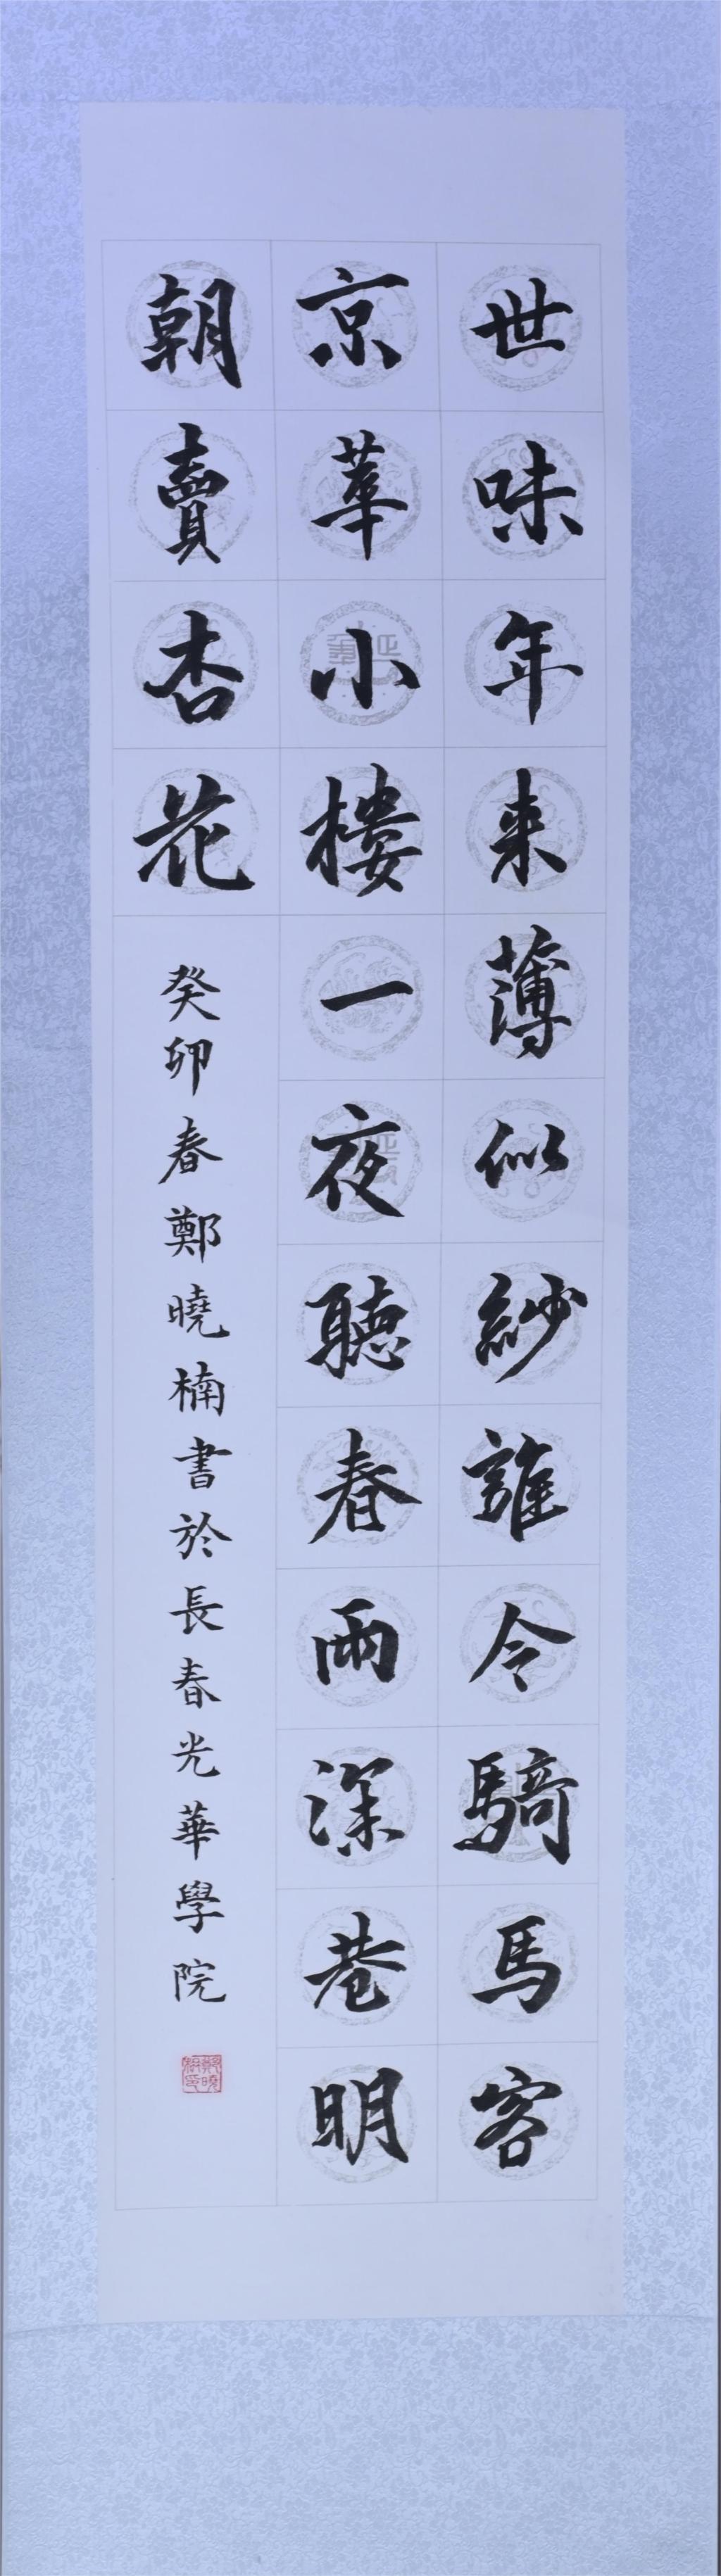 世味年来薄似紗誰令騎馬客
京華小樓一夜聽春雨深巷明
朝賣杏花
癸卯春鄭曉楠書於長春光華學院